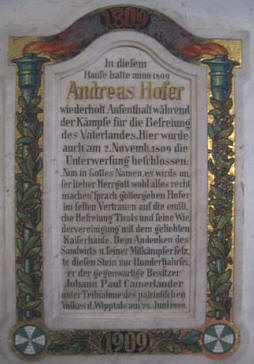 1809
In diesem
Hause hatte anno 1809
Andreas Hofer
wiederholt Aufenthalt während
der Kämpfe für die Befreiung
des Vaterlandes. Hier wurde
auch am 2. Novemb. 1809 die
Unterwerfung beschlossen:
„Nun in Gottes Namen, es wird's un-
ser lieber Herrgott wohl alles recht
machen" sprach gottergeben Hofer
im festen Vertrauen auf die endli-
che Befreiung Tirols und seine Wie-
dervereinigung mit dem geliebten
Kaiserhause. Dem Andenken des
Sandwirts u. seiner Mitkämpfer setz-
te diesen Stein zur Hundertjahrfei-
er der gegenwärtige Besitzer
Johann Paul Camerlander
unter Teilnahme des patriotischen
Volkes d. Wipptals am 29. Juni 1909.
1909